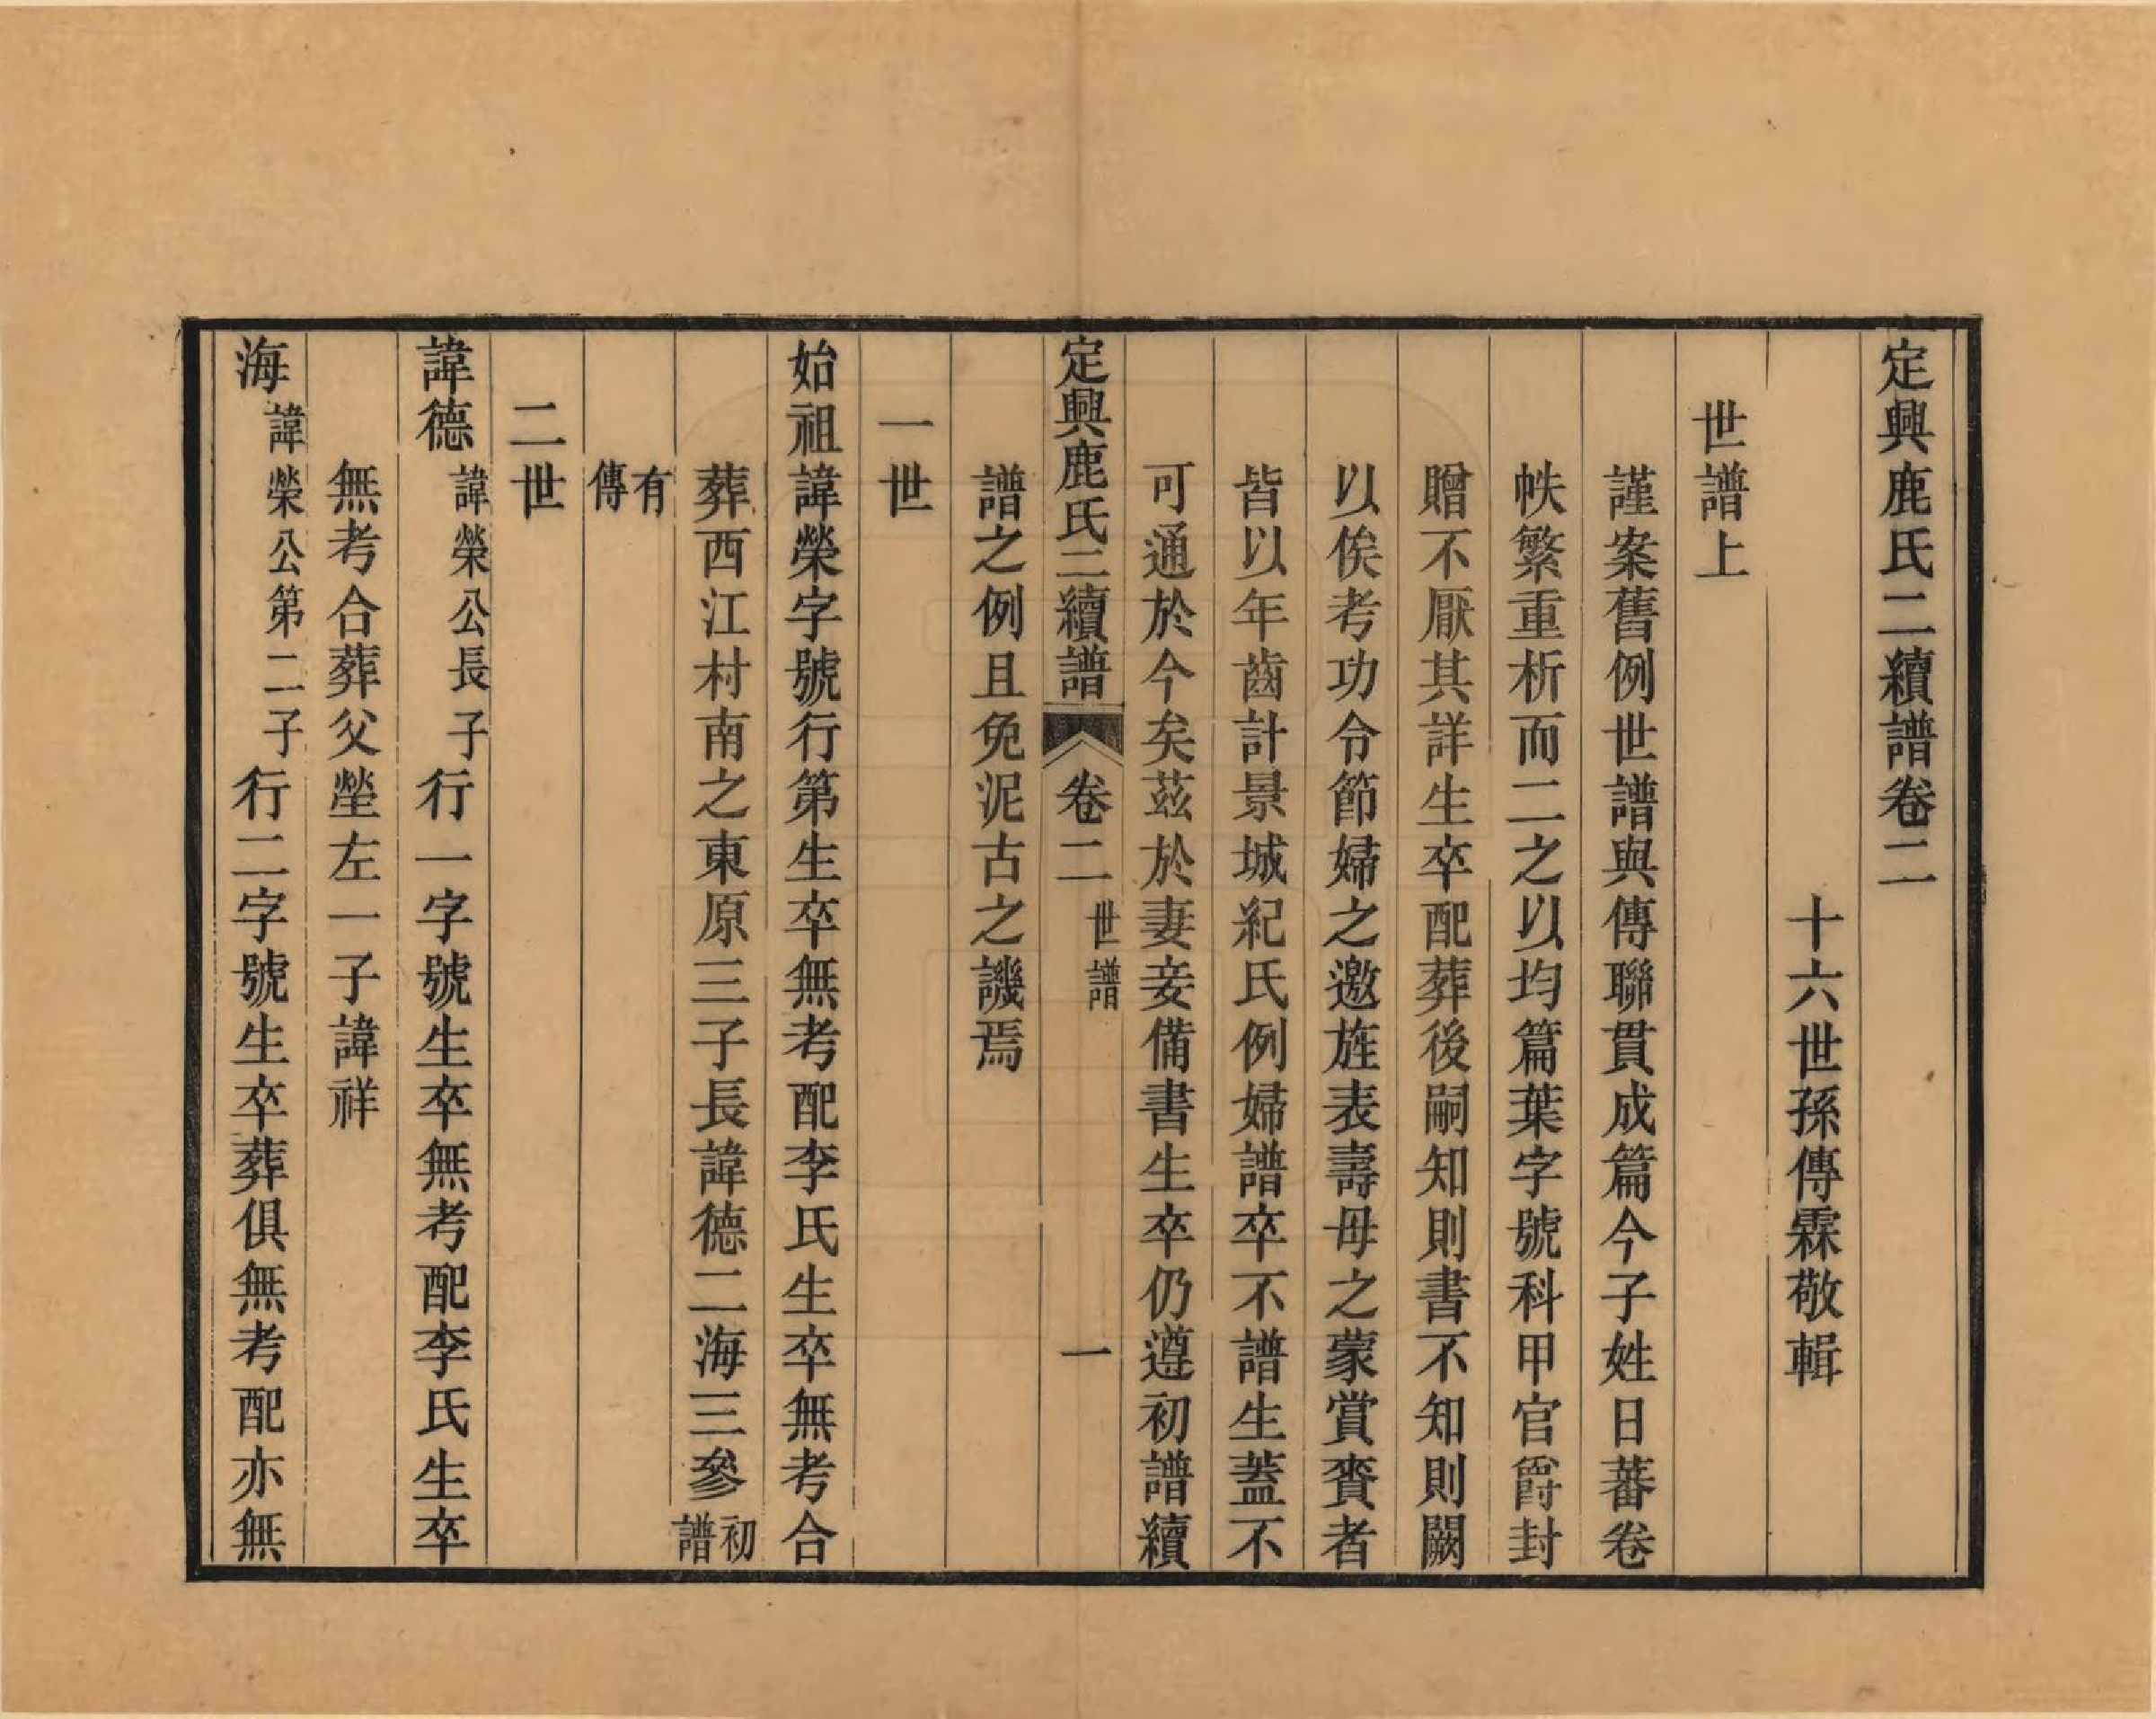 定興鹿氏二續譜卷二
十六世孫傳霖敬輯
世譜上
謹案舊例世譜與傳聯貫成篇今子姓日蕃卷
帙繁重析而二之以均篇葉字號科甲官爵封
贈不厭其詳生卒配葬後嗣知則書不知則闕
以俟考功令節婦之邀旌表壽母之蒙賞賚者
皆以年齒計景城紀氏例婦譜卒不譜生蓋不
可通於今矣茲於妻妾備書生卒仍遵初譜續
定興鹿氏二續譜 卷二 世譜 一
譜之例且免泥古之譏焉
一世
始祖諱榮字號行第生卒無考配李氏生卒無考合
葬西江村南之東原三子長諱德二海三參初譜
有傳
二世
諱德諱榮公長子行一字號生卒無考配李氏生卒
無考合葬父塋左一子諱祥
海諱榮公第二子行二字號生卒葬俱無考配亦無